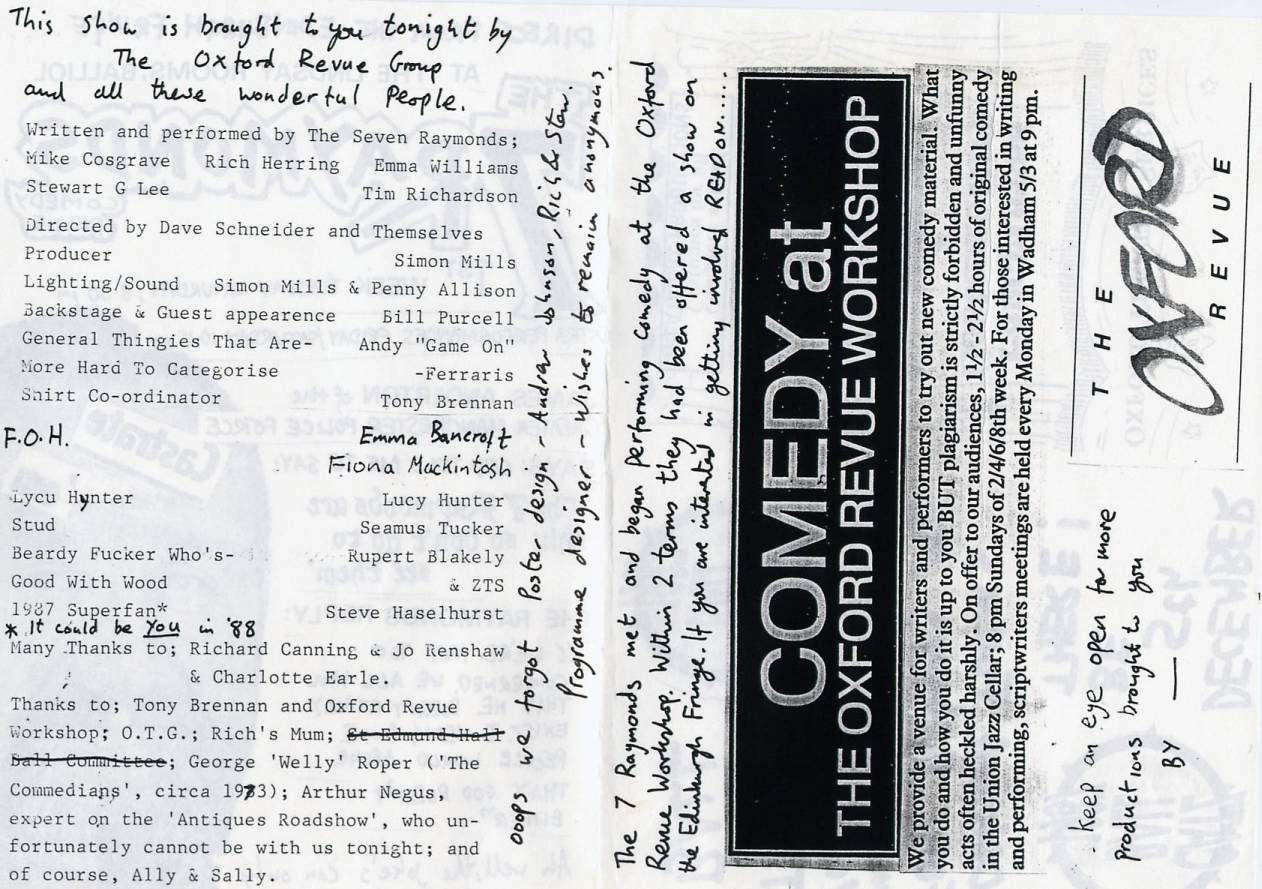 This show is brought to you tonight by
The Oxford Revue Group
and all these wonderful People.
Written and performed by The Seven Raymonds;
Mike Cosgrave Rich Herring Emma Williams
Stewart G Lee Tim Richardson
Directed by Dave Schneider and Themselves
Producer Simon Mills
Lighting/Sound Simon Mills & Penny Allison
Backstage & Guest appearence Bill Purcell
General Thingies That Are- Andy "Game On"
More Hard To Categorise -Ferraris
Shirt Co-ordinator Tony Brennan
F.O.H. Emma Bancroft
Fiona Mackintosh
Lycu Hynter Lucy Hunter
Stud Seamus Tucker
Beardy Fucker Who's- Rupert Blakely
Good With Wood & ZTS
1987 Superfan* Steve Haselhurst
* It could be you in '88
Many Thanks to; Richard Canning & Jo Renshaw
& Charlotte Earle.
Thanks to; Tony Brennan and Oxford Revue
Workshop; O.T.G.; Rich's Mum; St Edmund Hall
Ball Committee; George 'Welly' Roper ('The
Commedians', circa 1973); Arthur Negus,
expert on the 'Antiques Roadshow', who un-
fortunately cannot be with us tonight; and
of course, Ally & Sally.
ooops we forgot Poster design - Andrew Johnson, Rich & Stew.
Programme designer - wishes to remain anonymous.
The 7 Raymonds met and began performing comedy at the Oxford
Revue Workshop. Within 2 terms they had been offered a show on
the Edinburgh Fringe. If you are interated in getting involved READON.....
COMEDY at
THE OXFORD REVUE WORKSHOP
We provide a venue for writers and performers to try out new comedy material. What
you do and how you do it is up to you BUT plagiarism is strictly forbidden and unfunny
acts often heckled harshly. On offer to our audiences, 1½-2½ hours of original comedy
in the Union Jazz Cellar; 8 pm Sundays of 2/4/6/8th week. For those interested in writing
and performing, scriptwriters meetings are held every Monday in Wadham 5/3 at 9 pm.
keep an eye open for more
productions brought to you
BY —
THE
OXFORD
REVUE